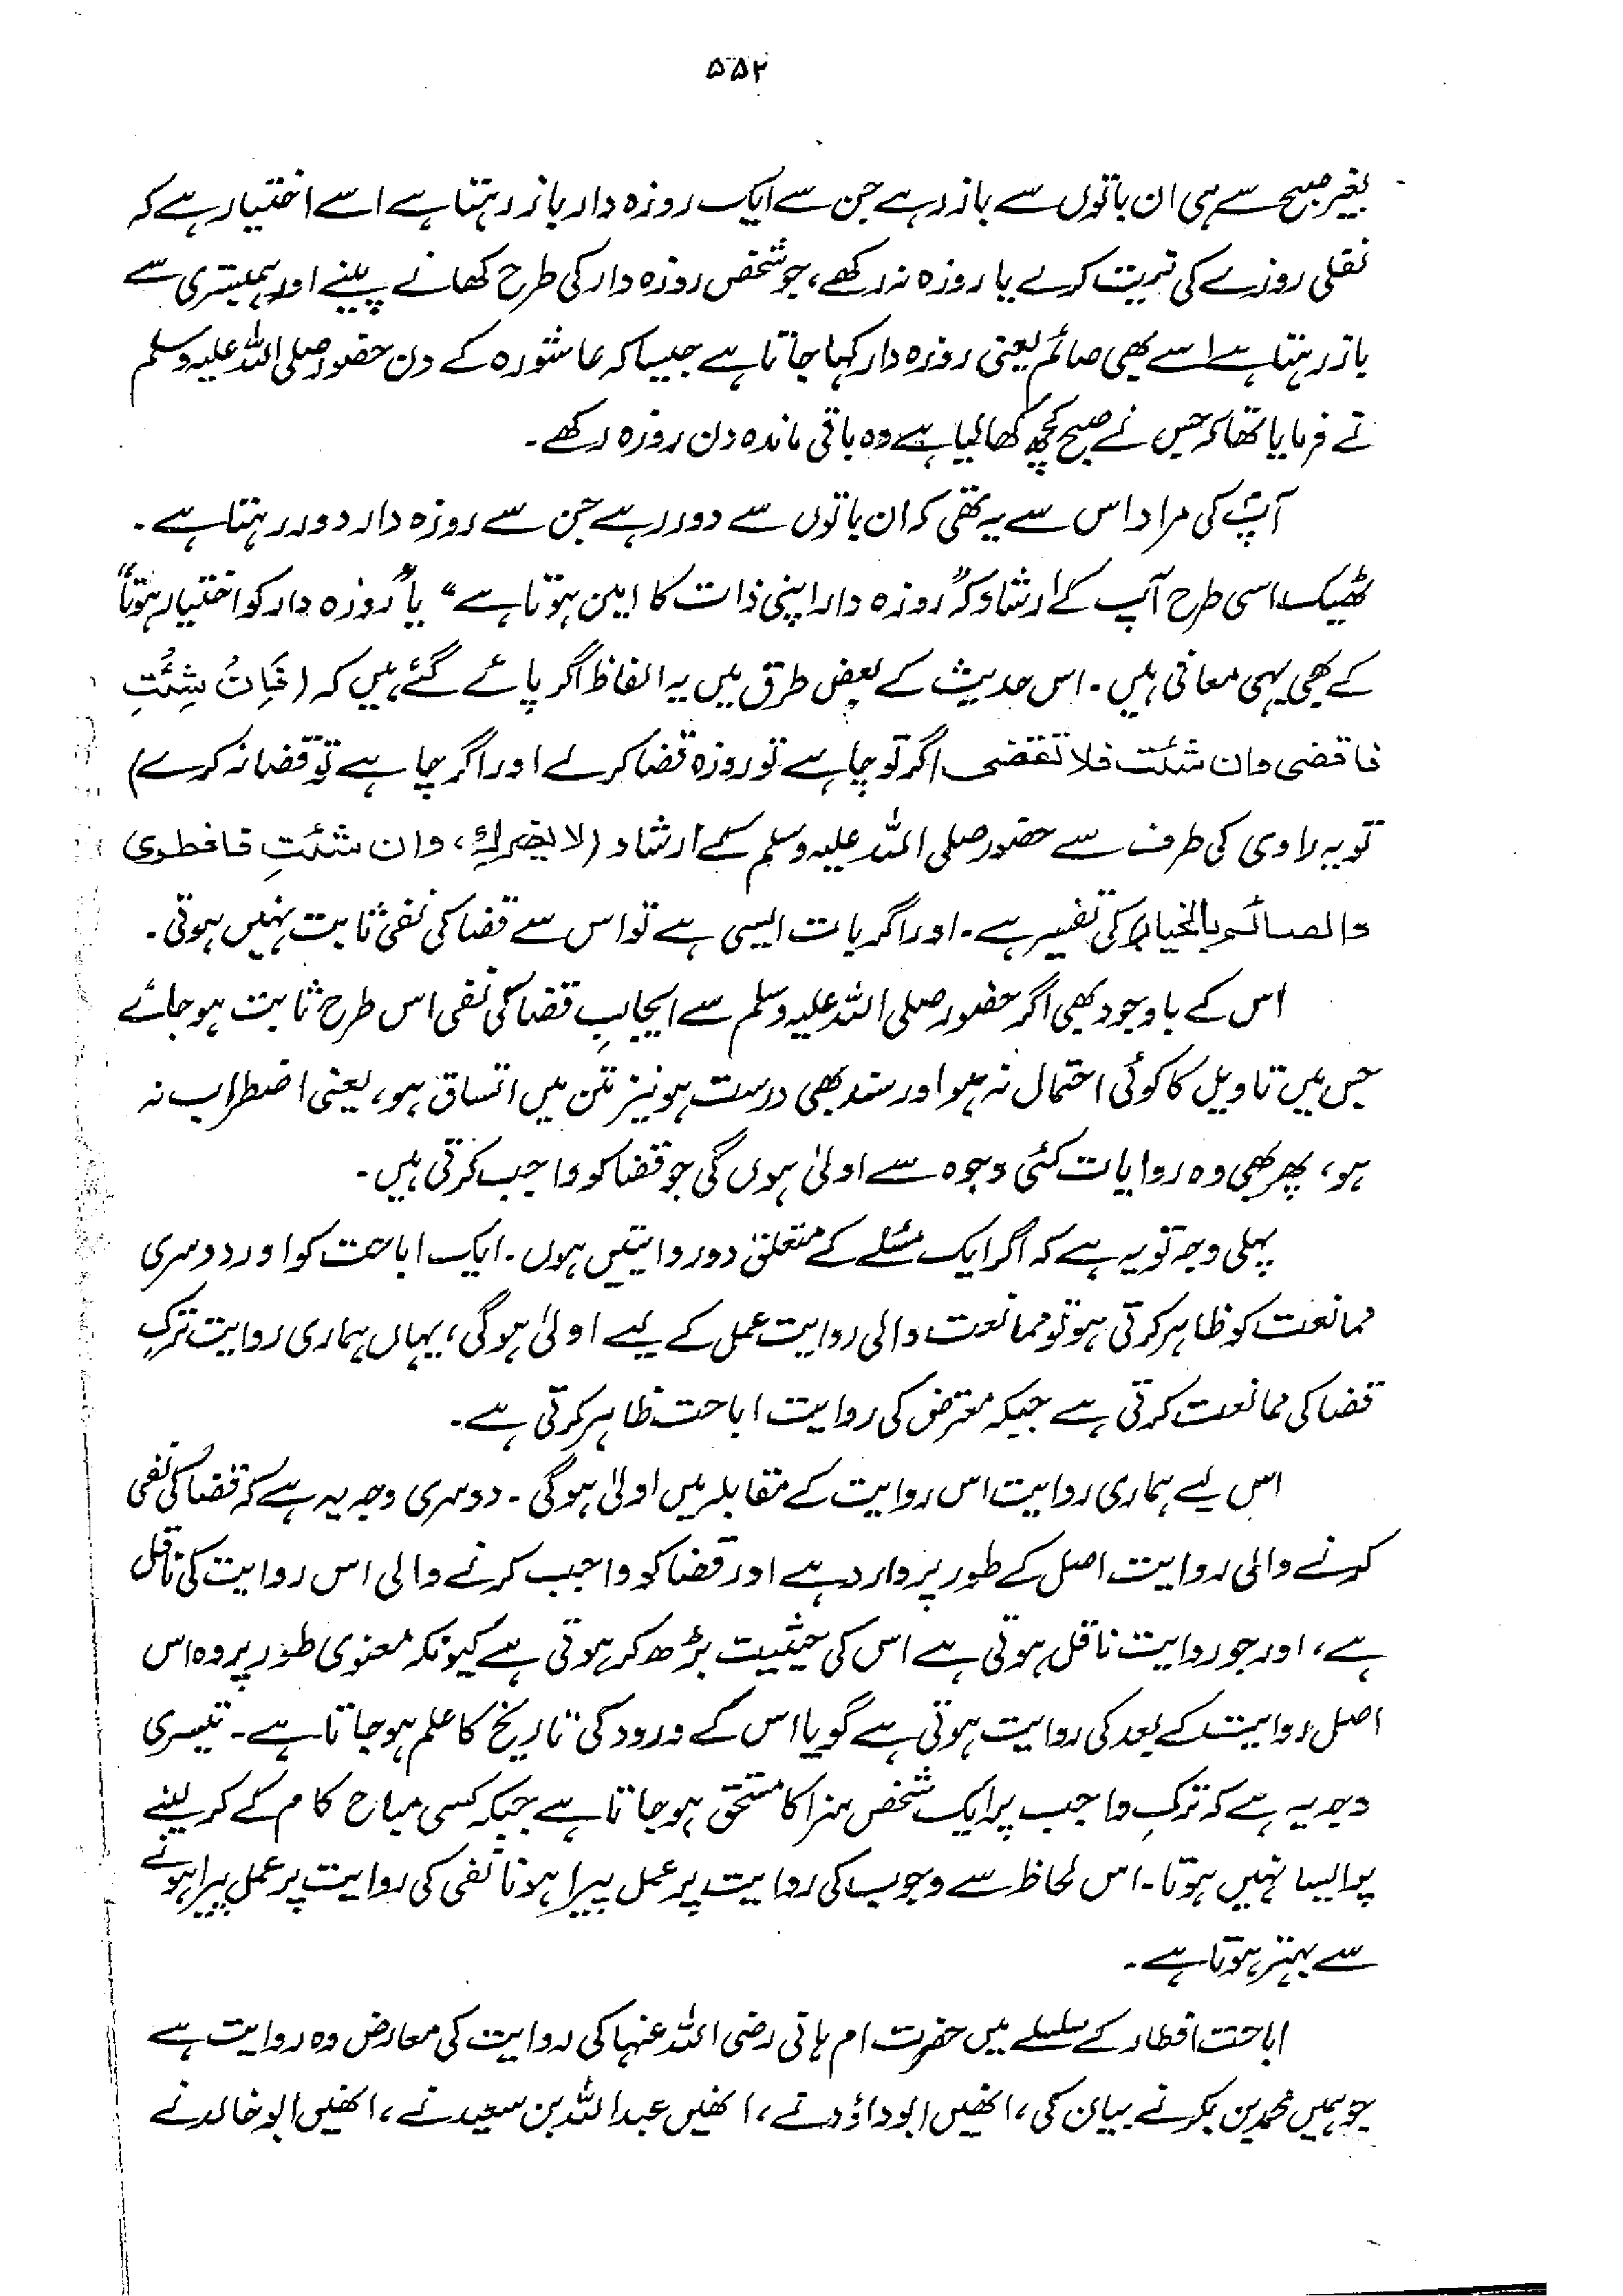 ۵۵۲
بغیر صبح سے ہی ان باتوں سے باز رہے جن سے ایک روزہ دار باز رہتا ہے اسے اختیار ہے کہ
نفلی روزے کی نیت کرلے یا روزہ نہ رکھے، جو شخص روزہ دار کی طرح کھانے پینے اور ہمبستری سے
باز رہتا ہے اسے بھی صائم یعنی روزہ دار کہا جاتا ہے جیسا کہ عاشورہ کے دن حضور صلی اللہ علیہ وسلم
نے فرمایا تھا کہ جس نے صبح کچھ کھا لیا ہے وہ باقی ماندہ دن روزہ رکھے۔
آپؐ کی مراد اس سے یہ تھی کہ ان باتوں سے دور رہے جن سے روزہ دار دور رہتا ہے۔
ٹھیک اسی طرح آپ کے ارشاد کہ "روزہ دار اپنی ذات کا امین ہوتا ہے" یا "روزہ دار کو اختیار ہوتا"
کے بھی یہی معانی ہیں۔ اس حدیث کے بعض طرق میں یہ الفاظ اگر پائے گئے ہیں کہ (فَاِنْ شِئْتِ
فاقضی وان شئت فلا تقضی اگر تو چاہے تو روزہ قضا کرلے اور اگر چاہے تو قضا نہ کرے)
تو یہ راوی کی طرف سے حضور صلی اللہ علیہ وسلم کے ارشاد (لا یضرك، وان شئتِ فافطری
والصائم بالخیار) کی تفسیر ہے۔ اور اگر بات ایسی ہے تو اس سے قضا کی نفی ثابت نہیں ہوتی۔
اس کے باوجود بھی اگر حضور صلی اللہ علیہ وسلم سے ایجابِ قضا کی نفی اس طرح ثابت ہو جائے
جس میں تاویل کا کوئی احتمال نہ ہو اور سند بھی درست ہو نیز متن میں اتساق ہو، یعنی اضطراب نہ
ہو، پھر بھی وہ روایات کئی وجوہ سے اولیٰ ہوں گی جو قضا کو واجب کرتی ہیں۔
پہلی وجہ تو یہ ہے کہ اگر ایک مسئلے کے متعلق دو روایتیں ہوں۔ ایک اباحت کو اور دوسری
ممانعت کو ظاہر کرتی ہو تو ممانعت والی روایت عمل کے لیے اولیٰ ہوگی، یہاں ہماری روایت ترکِ
قضا کی ممانعت کرتی ہے جبکہ معترض کی روایت اباحت ظاہر کرتی ہے۔
اس لیے ہماری روایت اس روایت کے مقابلہ میں اولیٰ ہوگی۔ دوسری وجہ یہ ہے کہ قضا کی نفی
کرنے والی روایت اصل کے طور پر وارد ہے اور قضا کو واجب کرنے والی اس روایت کی ناقل
ہے، اور جو روایت ناقل ہوتی ہے اس کی حیثیت بڑھ کر ہوتی ہے کیونکہ معنوی طور پر وہ اس
اصل روایت کے بعد کی روایت ہوتی ہے گویا اس کے ورود کی تاریخ کا علم ہو جاتا ہے۔ تیسری
وجہ یہ ہے کہ ترکِ واجب پر ایک شخص سزا کا مستحق ہو جاتا ہے جبکہ کسی مباح کام کے کر لینے
پر ایسا نہیں ہوتا۔ اس لحاظ سے وجوب کی روایت پر عمل پیرا ہونا نفی کی روایت پر عمل پیرا ہونے
سے بہتر ہوتا ہے۔
اباحتِ افطار کے سلسلے میں حضرت ام ہانی رضی اللہ عنہا کی روایت کی معارض وہ روایت ہے
جو ہمیں محمد بن بکر نے بیان کی، انھیں ابوداؤد نے، انھیں عبداللہ بن سعید نے، انھیں ابو خالد نے